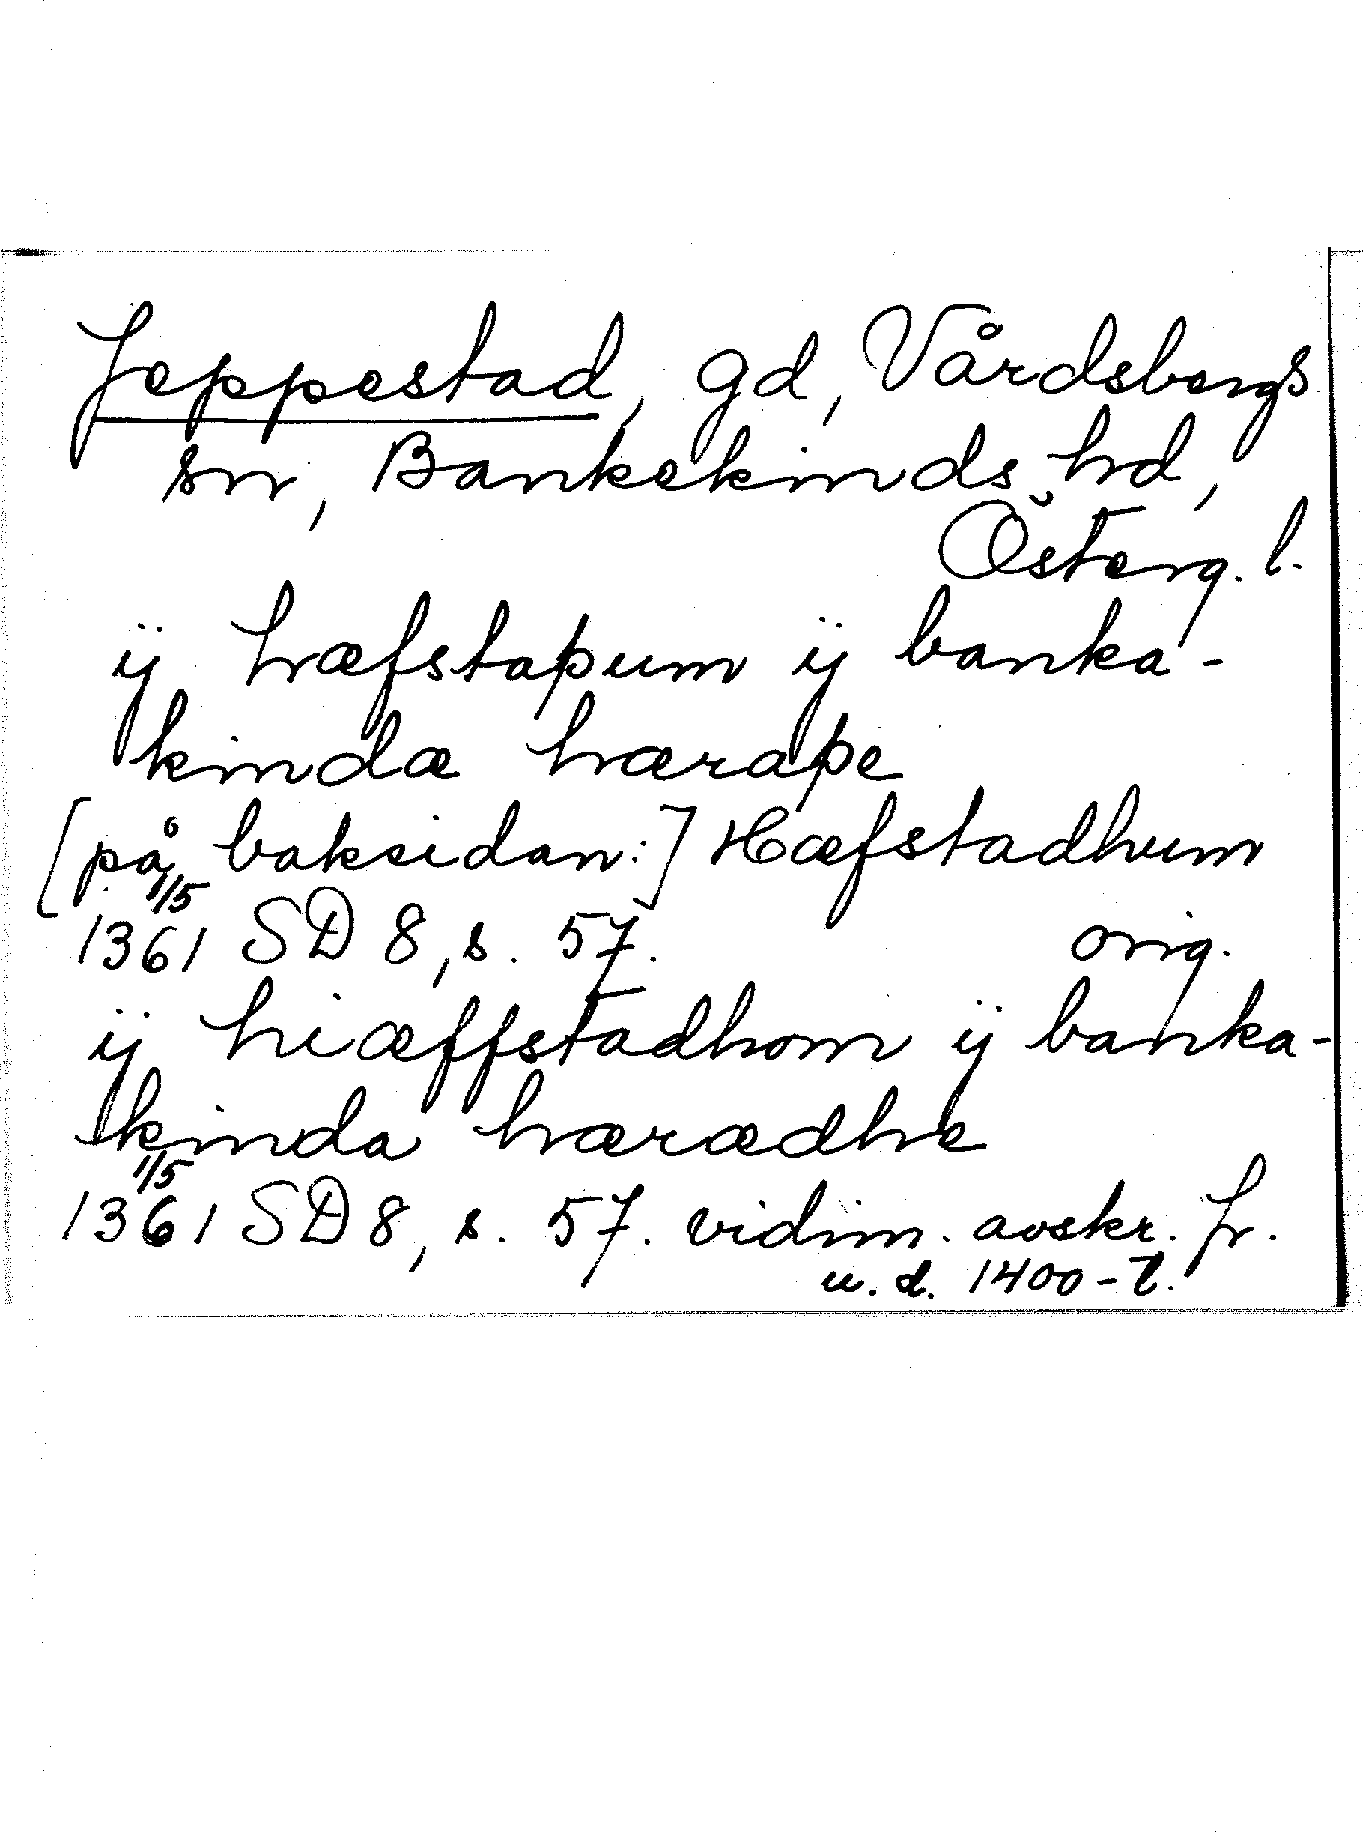 Jeppestad, gd, Vårdsbergs
sn, Bankekinds hd,
Österg. l.
ÿ hæfstaþum ÿ banka-
kindæ hæraþe
[på baksidan:] Hæfstadhum
1361 1/5 SD 8, s. 57. orig.
ÿ hiæffstadhom ÿ banka-
kinda hærædhe
1361 1/5 SD 8, s. 57. vidim. avskr. fr.
u. d. 1400-t.